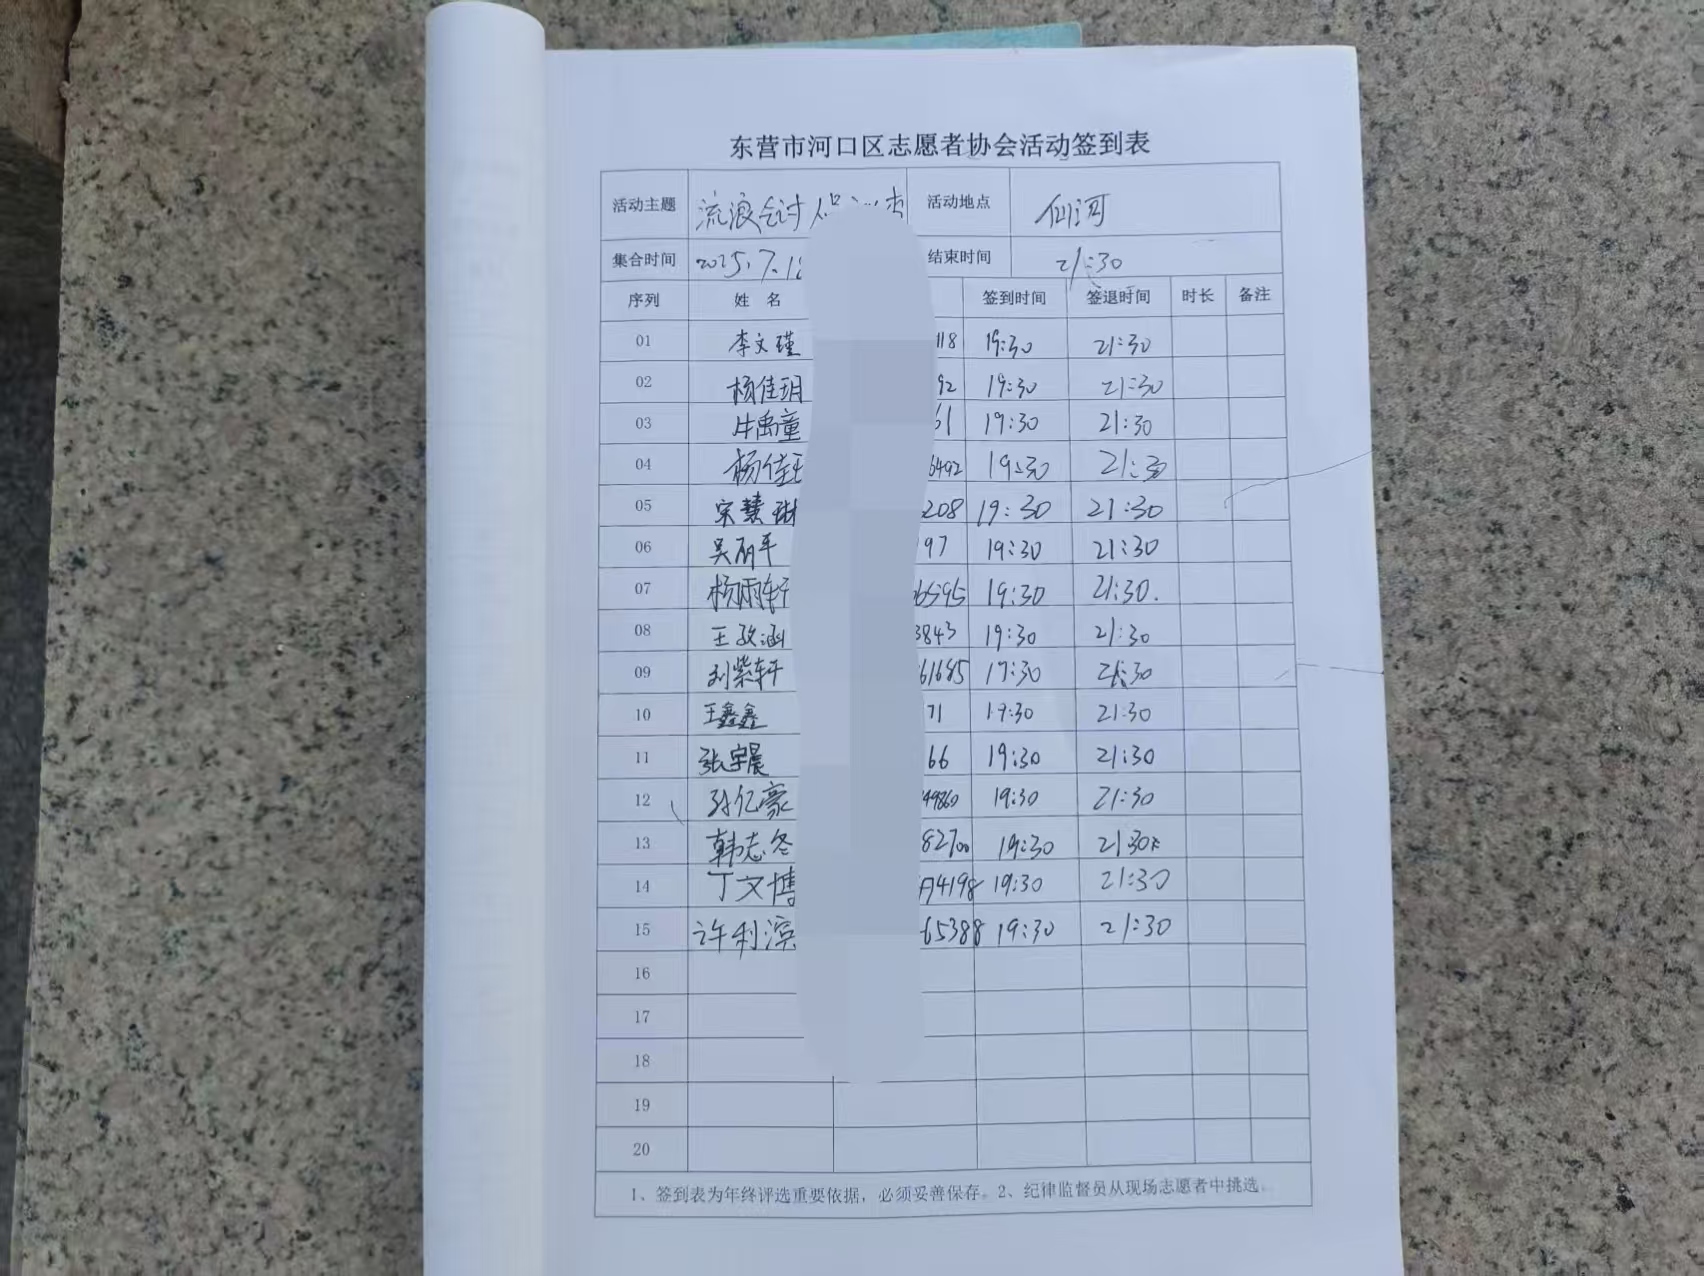 东营市河口区志愿者协会活动签到表
活动主题 流浪 活动地点 仙河
集合时间 2025.7.18 结束时间 21:30
序列 姓 名 签到时间 签退时间 时长 备注
01 李文瑾 118 19:30 21:30
02 杨佳玥 92 19:30 21:30
03 牛禹童 61 19:30 21:30
04 杨佳 6492 19:30 21:30
05 宋慧琳 208 19:30 21:30
06 吴丽平 97 19:30 21:30
07 杨雨轩 6595 19:30 21:30.
08 王孜涵 3843 19:30 21:30
09 刘紫轩 61685 17:30 21:30
10 王鑫鑫 71 19:30 21:30
11 张宇晨 66 19:30 21:30
12 孙亿豪 49860 19:30 21:30
13 韩志冬 82700 19:30 21:30
14 丁文博 4198 19:30 21:30
15 许利滨 65388 19:30 21:30
16
17
18
19
20
1、签到表为年终评选重要依据，必须妥善保存。2、纪律监督员从现场志愿者中挑选。